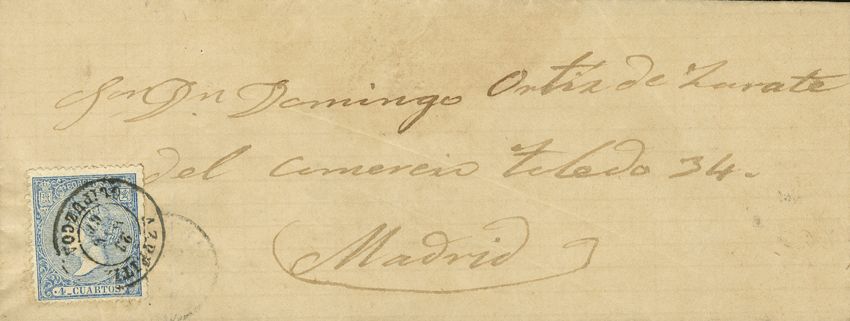 Sor Dn Domingo Ortiz de Zarate
del comercio Toledo 34.
Madrid
AZPEITIA
GUIPUZCOA
22
4 CUARTOS